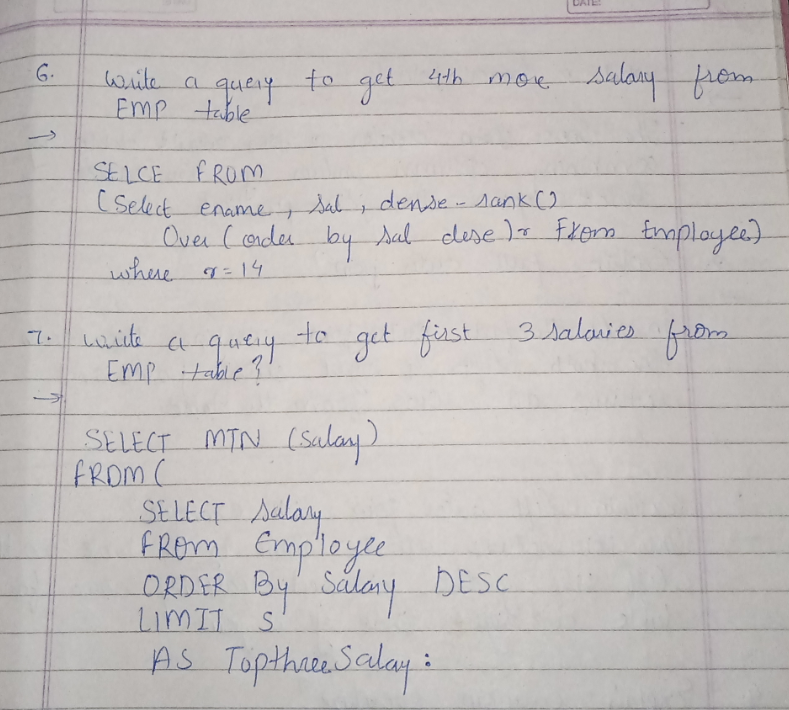 DATE
6. Write a query to get 4th more salary from
EMP table
→
SELCE FROM
(Select ename, sal, dense-rank()
Over (order by sal dese) r From Employee)
where r=14
7. Write a query to get first 3 salaries from
EMP table?
→
SELECT MIN (Salary)
FROM (
SELECT Salary
FROM Employee
ORDER By Salary DESC
LIMIT S
AS TopthreeSalay: